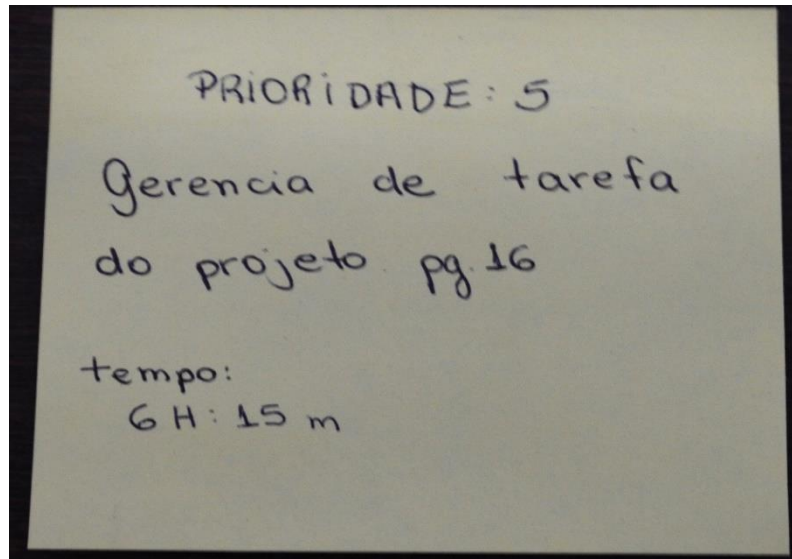 PRiORiDADE: 5
Gerencia de tarefa
do projeto pg. 16
tempo:
6 H: 15 m